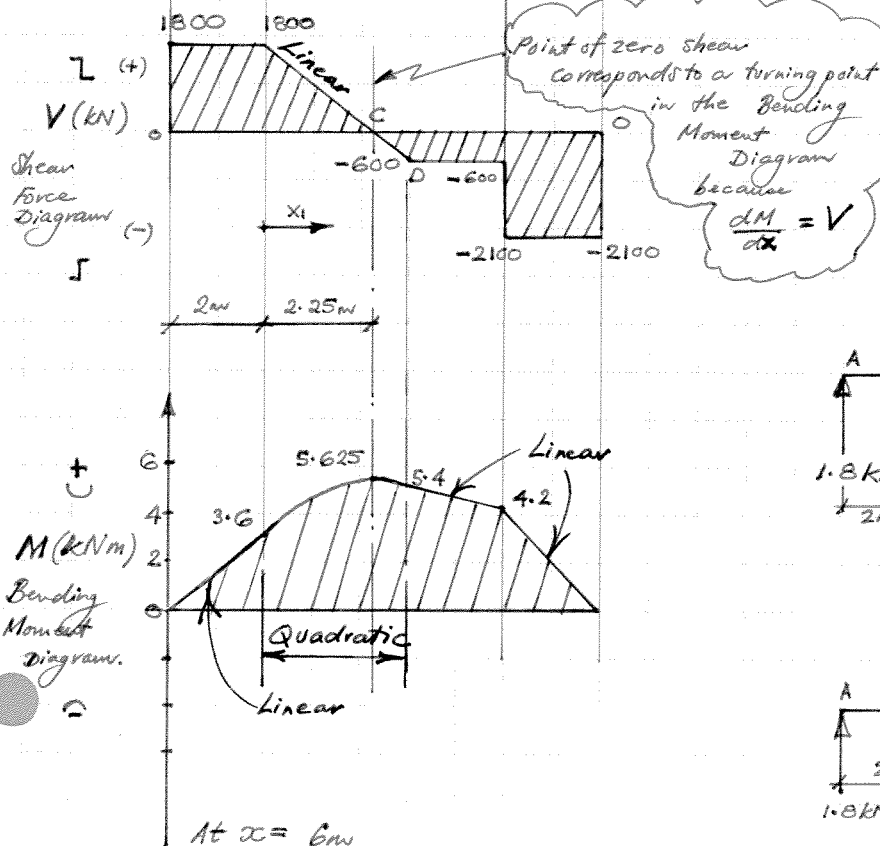 1800
1800
Linear
(+)
V (kN)
0
C
-600
D
-600
0
Point of zero shear
corresponds to a turning point
in the Bending
Moment
Diagram
because
dM/dx = V
Shear
Force
Diagram
(-)
x1
-2100
-2100
2m
2.25m
A
1.8k
+
6
5.625
5.4
Linear
4.2
3.6
4
M (kNm)
2
Bending
Moment
Diagram.
0
Quadratic
Linear
-
A
1.8kN
At x = 6m